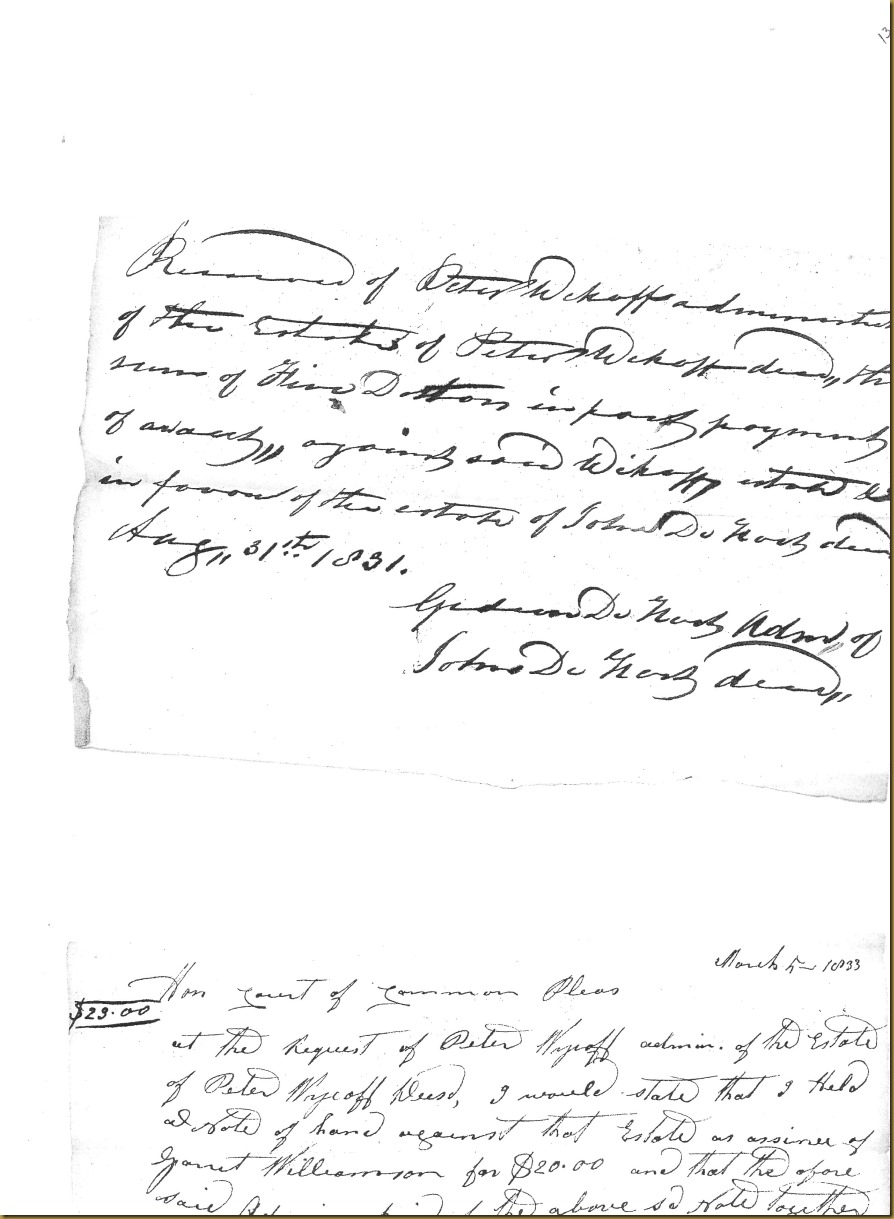 13
Received of Peter Wikoff administ
of the Estate of Peter Wikoff decd,, th
sum of Five Dollars in part payment
of against said Wikoff estate &
in favour of the estate of John De decd
Aug,, 31th 1831.
De Admr,, of
John De decd,,
March 5 1833
Hon Court of Common Pleas
$23.00
at the Request of Peter Wycoff admin. of the Estate
of Peter Wycoff Decsd, I would state that I Held
a Note of hand against that Estate as assinee of
Garret Williamson for $20.00 and that the afore
said the above sd Note Together